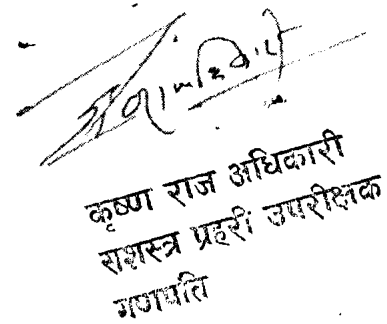 कृष्ण राज अधिकारी
सशस्त्र प्रहरी उपरीक्षक
गणपति